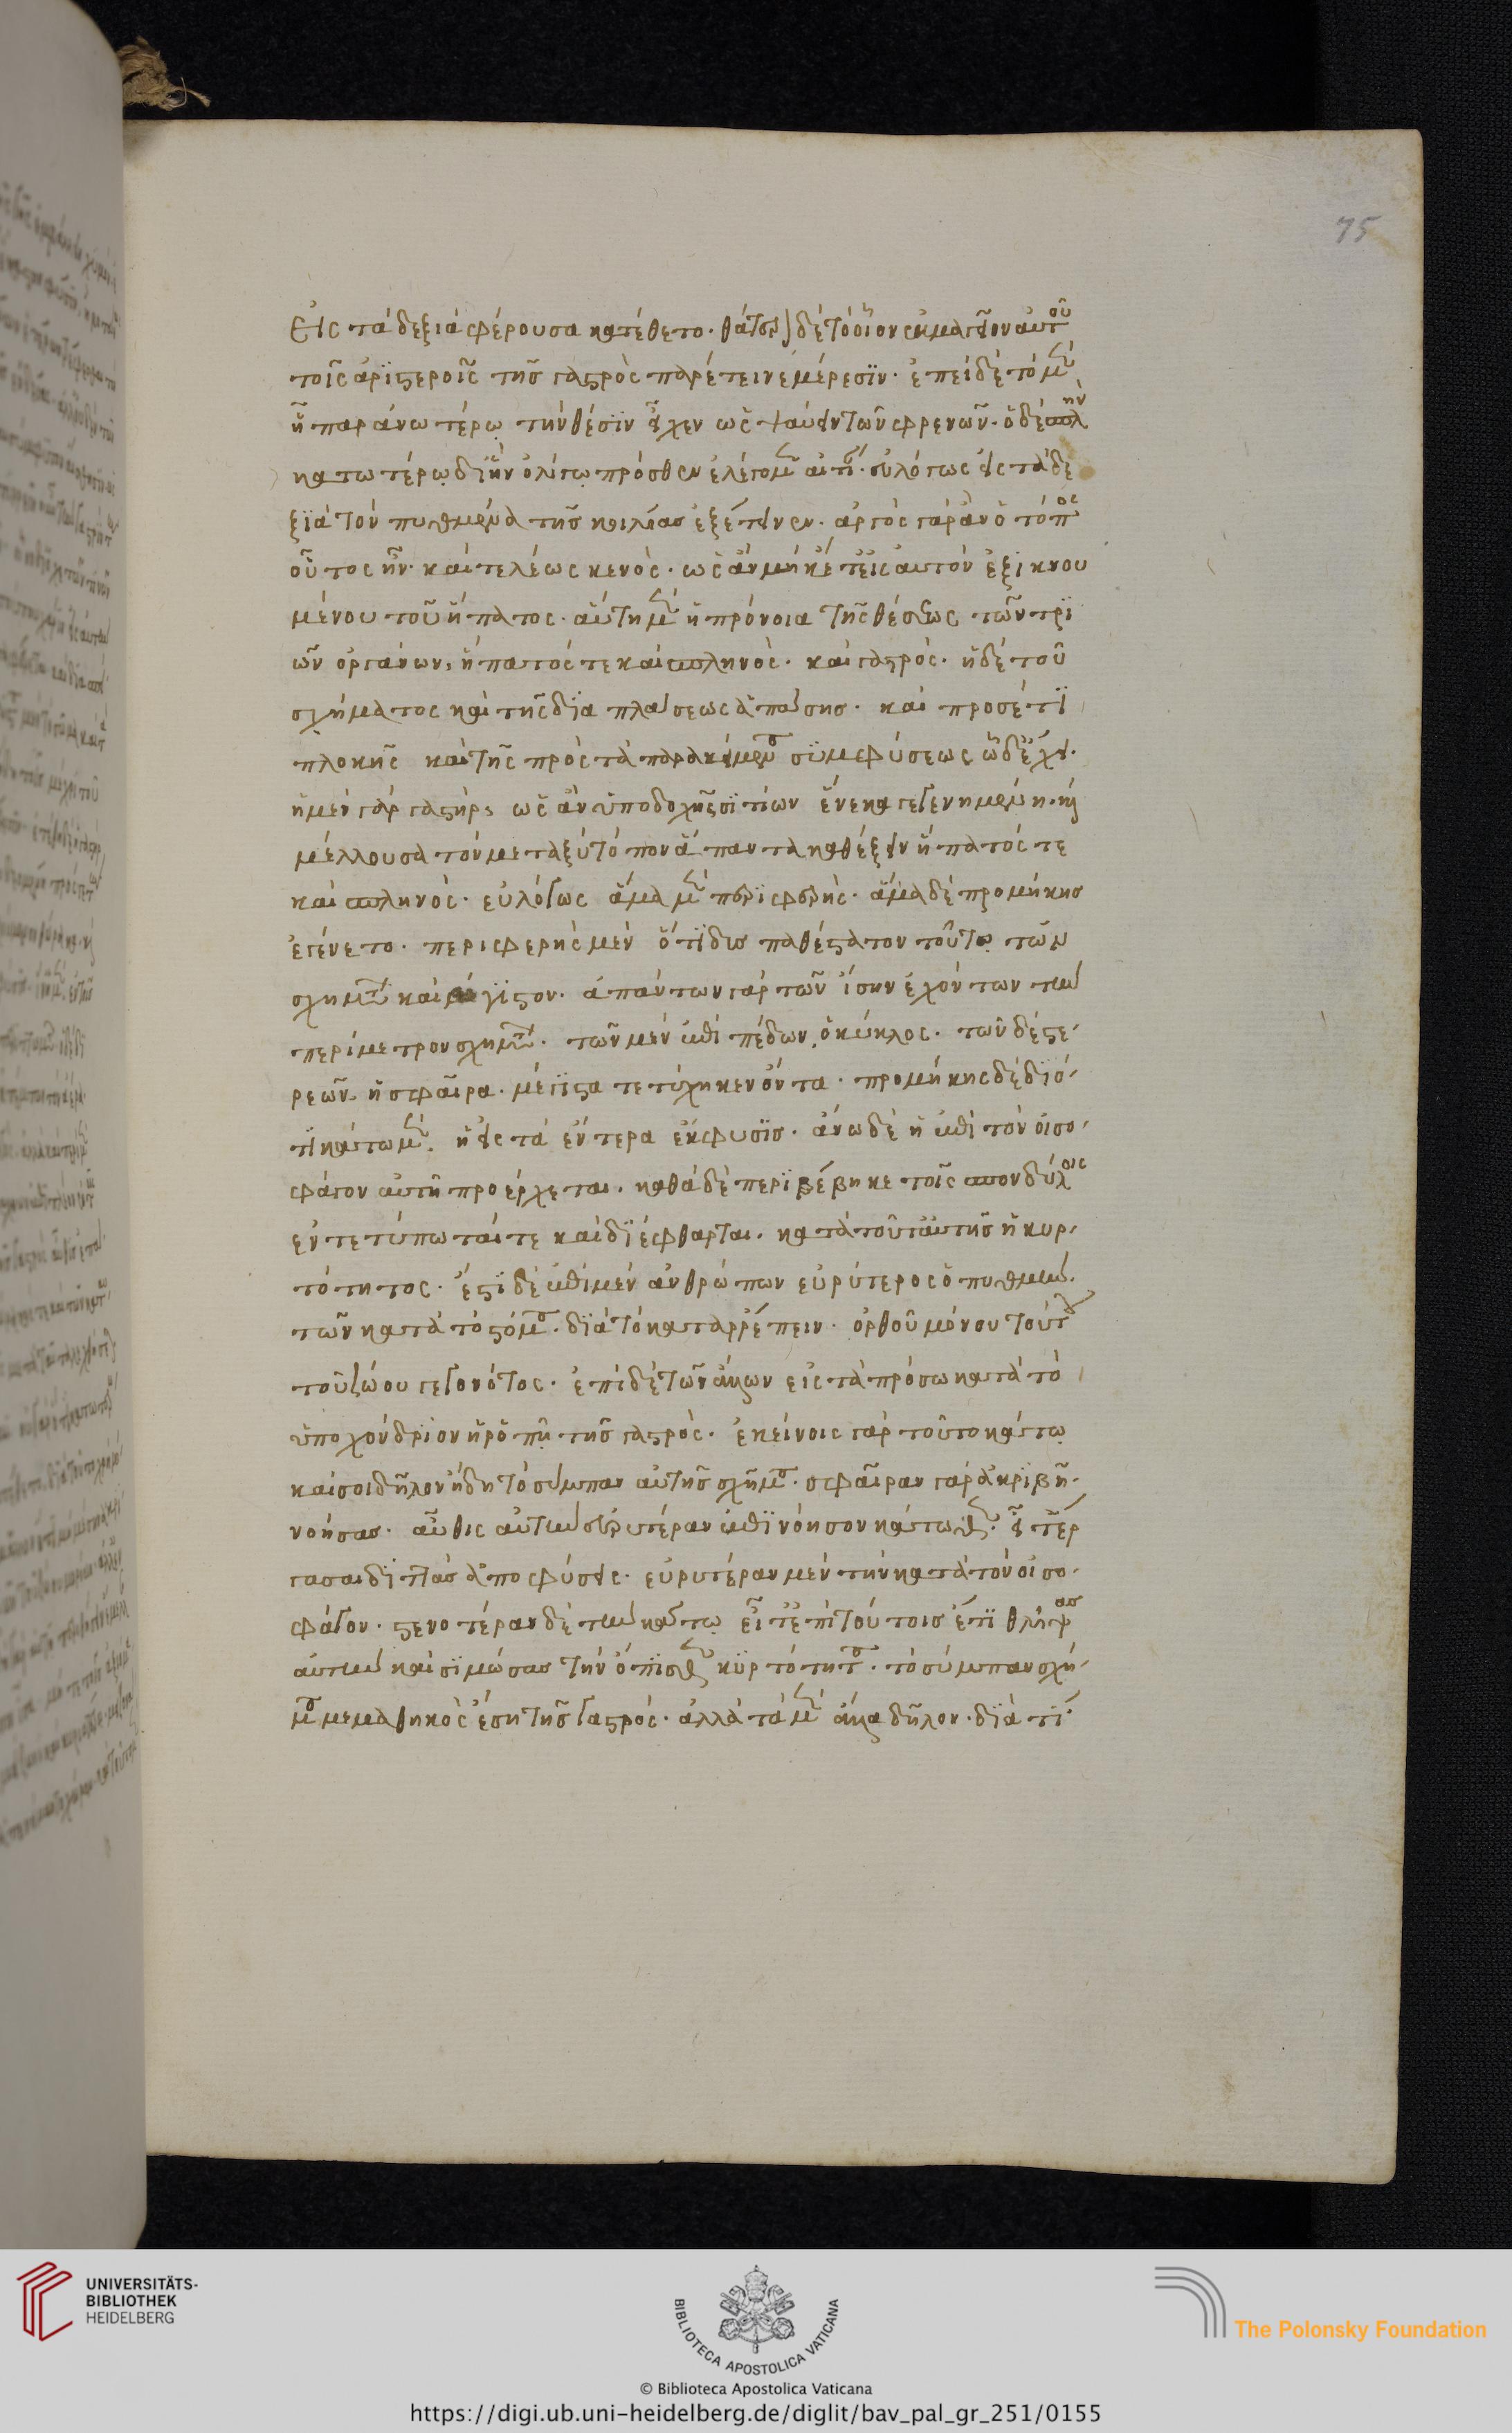 75
Εἰς τὰ δεξιὰ φέρουσα κατέθετο. θάτερον δὲ τὸ οἷον ἐκμαγεῖον αὐτοῦ
τοῖς ἀριστεροῖς τῆς γαστρὸς παρέτεινε μέρεσιν. ἐπεὶ δὲ τὸ μὲν
ἧπαρ ἀνωτέρω τὴν θέσιν εἶχεν ὡς ψαύειν τῶν φρενῶν. ὁ δὲ σπλὴν
κατωτέρω δι' ἣν ὀλίγῳ πρόσθεν ἐλέγομεν αἰτίαν. εὐλόγως εἰς τὰ δε
ξιὰ τὸν πυθμένα τῆς κοιλίας ἐξέτεινεν. ἀργὸς γὰρ ἂν ὁ τόπος
οὗτος ἦν. καὶ τελέως κενὸς. ὡς ἂν μηκέτ' εἰς αὐτὸν ἐξικνου
μένου τοῦ ἥπατος. αὕτη μὲν ἡ πρόνοια τῆς θέσεως τῶν τρι
ῶν ὀργάνων, ἥπατός τε καὶ σπληνὸς. καὶ γαστρὸς. ἡ δὲ τοῦ
σχήματος καὶ τῆς διαπλάσεως ἁπάσης. καὶ προσέτι
πλοκῆς καὶ τῆς πρὸς τὰ παρακείμενα συμφύσεως ὧδ' ἔχει.
ἡ μὲν γὰρ γαστήρ, ὡς ἂν ὑποδοχῆς σιτίων ἕνεκα γεγενημένη. καὶ
μέλλουσα τὸν μεταξὺ τόπον ἅπαντα καθέξειν ἥπατός τε
καὶ σπληνὸς. εὐλόγως ἅμα μὲν περιφερὴς. ἅμα δὲ προμήκης
ἐγένετο. περιφερὴς μὲν ὅτι δυσπαθέστατον τοῦτο τῶν
σχημάτων καὶ μέγιστον. ἁπάντων γὰρ τῶν ἴσην ἐχόντων τὴν
περίμετρον σχημάτων. τῶν μὲν ἐπιπέδων, ὁ κύκλος. τῶν δὲ στε-
ρεῶν ἡ σφαῖρα. μέγιστα τετύχηκεν ὄντα. προμήκης δὲ διό-
τι κάτω μὲν. ἡ εἰς τὰ ἔντερα ἔκφυσις. ἄνω δὲ ἡ ἐπὶ τὸν οἰσο-
φάγον αὐτῇ προέρχεται. καθὰ δὲ περιβέβηκε τοῖς σπονδύλοις
ἐντετύπωταί τε καὶ διέφθαρται. κατὰ τοῦτ' αὐτῆς ἡ κυρ-
τότητος. ἔστι δὲ ἐπὶ μὲν ἀνθρώπων εὐρύτερος ὁ πυθμὴν.
τῶν κατὰ τὸ στόμα. διὰ τὸ καταρρέπειν. ὀρθοῦ μόνου τούτου
τοῦ ζώου γεγονότος. ἐπὶ δὲ τῶν ἄλλων εἰς τὰ πρόσω κατὰ τὸ
ὑποχόνδριον ἡ ῥοπῆ τῆς γαστρὸς. ἐκείνοις γὰρ τοῦτο κάτω
καὶ σοι δῆλον ἤδη τὸ σύμπαν αὐτῆς σχῆμα. σφαῖραν γὰρ ἀκριβῆ
νοήσας. αὖθις αὐτὴν εὐρυτέραν ἐπινόησον κάτωθεν. εἶτ' ἐρ
γασαι διττὰς ἀποφύσεις. εὐρυτέραν μὲν τὴν κατὰ τὸν οἰσο-
φάγον. στενοτέραν δὲ τὴν κάτω εἶτ' ἐπὶ τούτοις ἔτι θλίψας
αὐτὴν καὶ σιμώσας τὴν ὄπισθεν κυρτότητα. τὸ σύμπαν σχῆ-
μα μεμαθηκὸς ἔσῃ τῆς γαστρὸς. ἀλλὰ τὰ μὲν ἄλλα δῆλον. διὰ τί
UNIVERSITÄTS-
BIBLIOTHEK
HEIDELBERG
BIBLIOTECA APOSTOLICA VATICANA
The Polonsky Foundation
© Biblioteca Apostolica Vaticana
https://digi.ub.uni-heidelberg.de/diglit/bav_pal_gr_251/0155